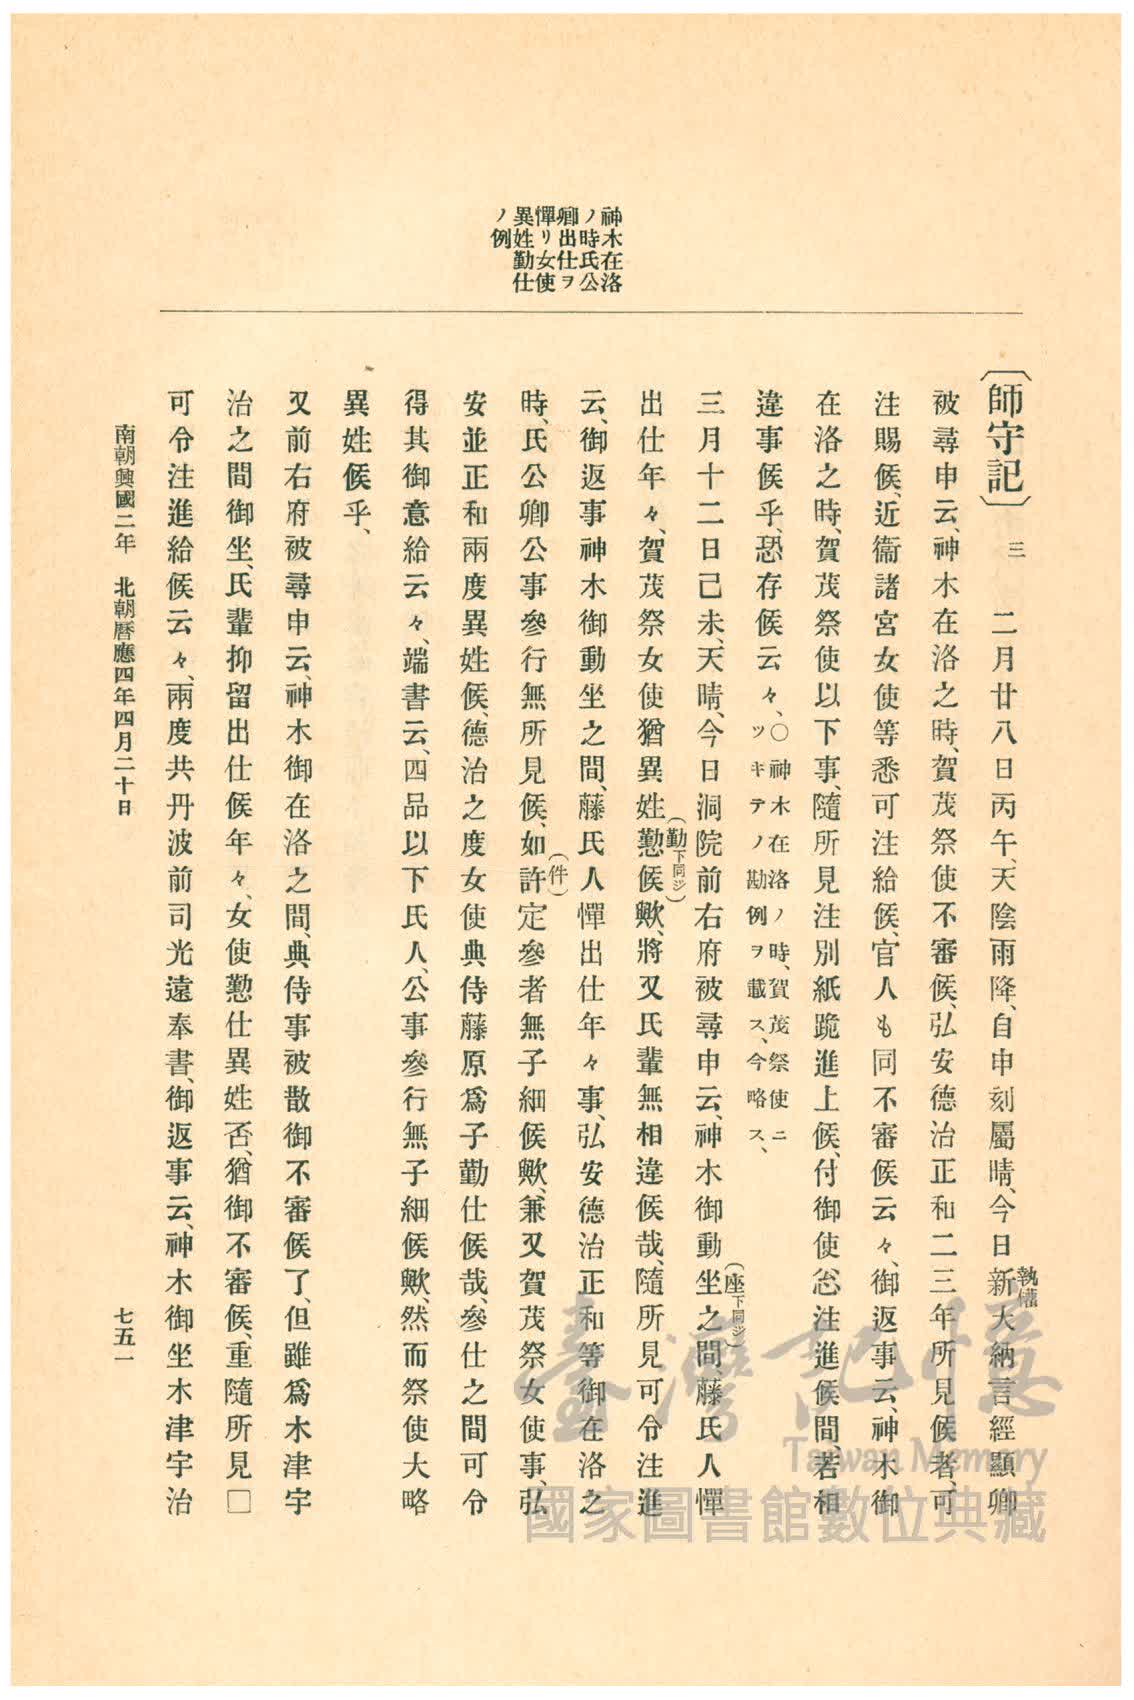 神木在洛
ノ時氏公
卿出仕ヲ
憚リ女使
異姓勤仕
ノ例
〔師守記〕三 二月廿八日丙午、天陰雨降、自申刻屬晴、今日新大納言經顯卿
執權
被尋申云、神木在洛之時、賀茂祭使不審候、弘安德治正和二三年所見候者、可
注賜候、近衞諸宮女使等悉可注給候、官人も同不審候云々、御返事云、神木御
在洛之時、賀茂祭使以下事、隨所見注別紙跪進上候、付御使忩注進候間、若相
違事候乎、恐存候云々、〇神木在洛ノ時、賀茂祭使ニ
ツキテノ勘例ヲ載ス、今略ス、
三月十二日己未、天晴、今日洞院前右府被尋申云、神木御動坐之間、藤氏人憚
(座下同ジ)
出仕年々、賀茂祭女使猶異姓懃候歟、將又氏輩無相違候哉、隨所見可令注進
(勤下同ジ)
云、御返事神木御動坐之間、藤氏人憚出仕年々事、弘安德治正和等御在洛之
時、氏公卿公事參行無所見候、如許定參者無子細候歟、兼又賀茂祭女使事、弘
(件)
安並正和兩度異姓候、德治之度女使典侍藤原爲子勤仕候哉、參仕之間可令
得其御意給云々、端書云、四品以下氏人、公事參行無子細候歟、然而祭使大略
異姓候乎、
又前右府被尋申云、神木御在洛之間、典侍事被散御不審候了、但雖爲木津宇
治之間御坐、氏輩抑留出仕候年々、女使懃仕異姓否、猶御不審候、重隨所見□
可令注進給候云々、兩度共丹波前司光遠奉書、御返事云、神木御坐木津宇治
南朝興國二年 北朝曆應四年四月二十日
七五一
臺灣記憶
Taiwan Memory
國家圖書館數位典藏